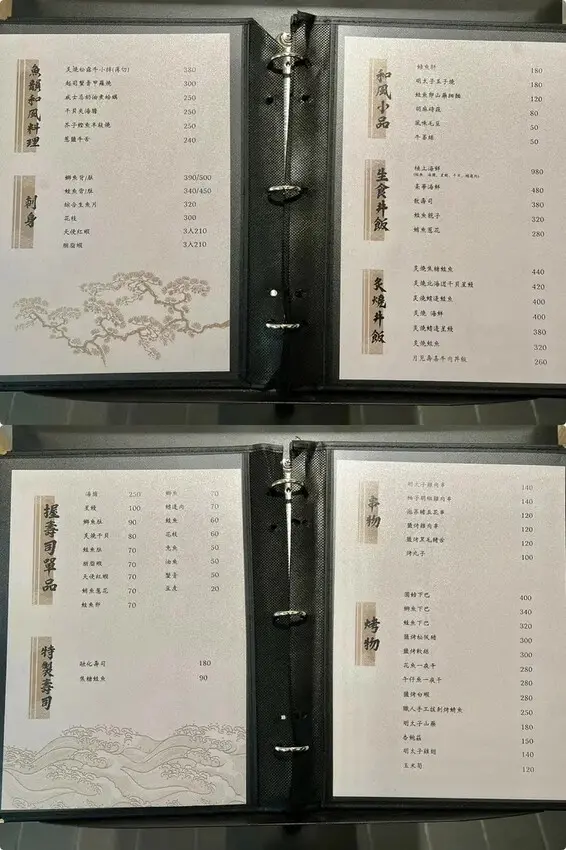 魚類和風料理
炙燒松露牛小排(薄切) 380
起司蟹膏甲羅燒 300
威士忌奶油煮蛤蠣 250
干貝炙海膽 250
芥子鰹魚半敲燒 250
蔥鹽牛舌 240
刺身
鰤魚背/肚 390/500
鮭魚背/肚 340/450
綜合生魚片 320
花枝 300
天使紅蝦 3入210
胭脂蝦 3入210
和風小品
鮟鱇魚肝 180
明太子玉子燒 180
鮭魚卵山藥細麵 120
胡麻綺菇 80
風味毛豆 50
牛蒡絲 50
生食丼飯
極上海鮮 980
豪華海鮮 480
散壽司 380
鮭魚親子 320
鮪魚蔥花 280
炙燒丼飯
炙燒焦糖鮭魚 440
炙燒北海道干貝星鰻 420
炙燒鰭邊鮭魚 400
炙燒 海鮮 400
炙燒鰭邊星鰻 380
炙燒鮭魚 320
月見壽喜牛肉丼飯 260
握壽司單品
海膽 250
星鰻 100
鰤魚肚 90
炙燒干貝 80
鮭魚肚 70
胭脂蝦 70
天使紅蝦 70
鮪魚蔥花 70
鮭魚卵 70
鰤魚 70
鰭邊肉 70
鮭魚 60
花枝 60
魚 50
油魚 50
蟹膏 50
豆皮 20
特製壽司
融化壽司 180
焦糖鮭魚 90
串物
明太子雞肉串 140
柚子胡椒雞肉串 140
泡菜豬五花串 120
鹽烤雞肉串 120
鹽烤黑毛豬 120
烤丸子 100
烤物
鰤魚下巴 400
鮭魚下巴 340
320
鹽烤松阪豬 300
鹽烤軟絲 300
花魚一夜干 280
午仔魚一夜干 280
鹽烤白蝦 280
職人手工現刺烤鯖魚 250
明太子山藥 180
杏鮑菇 150
明太子雞翅 140
玉米筍 120